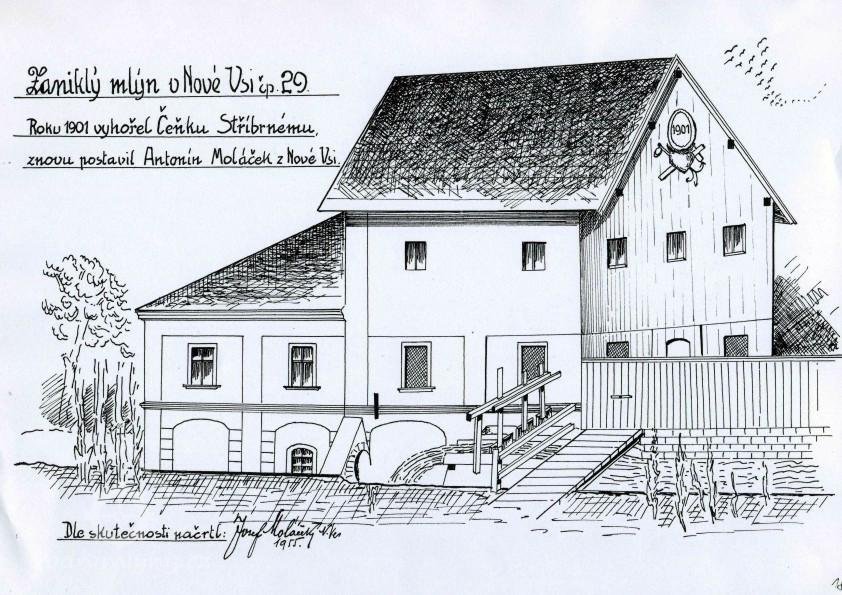 Zaniklý mlýn v Nové Vsi čp. 29.
Roku 1901 vyhořel Čeňku Stříbrnému,
znovu postavil Antonín Moláček z Nové Vsi.
1901
Dle skutečnosti načrtl: Josef Moláček N. Ves
1955.